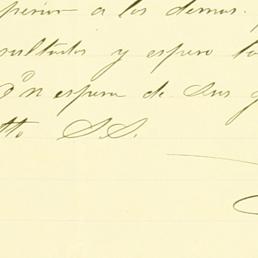 perior a los demas.
sultados y espero
En espera de sus
tto S.S.